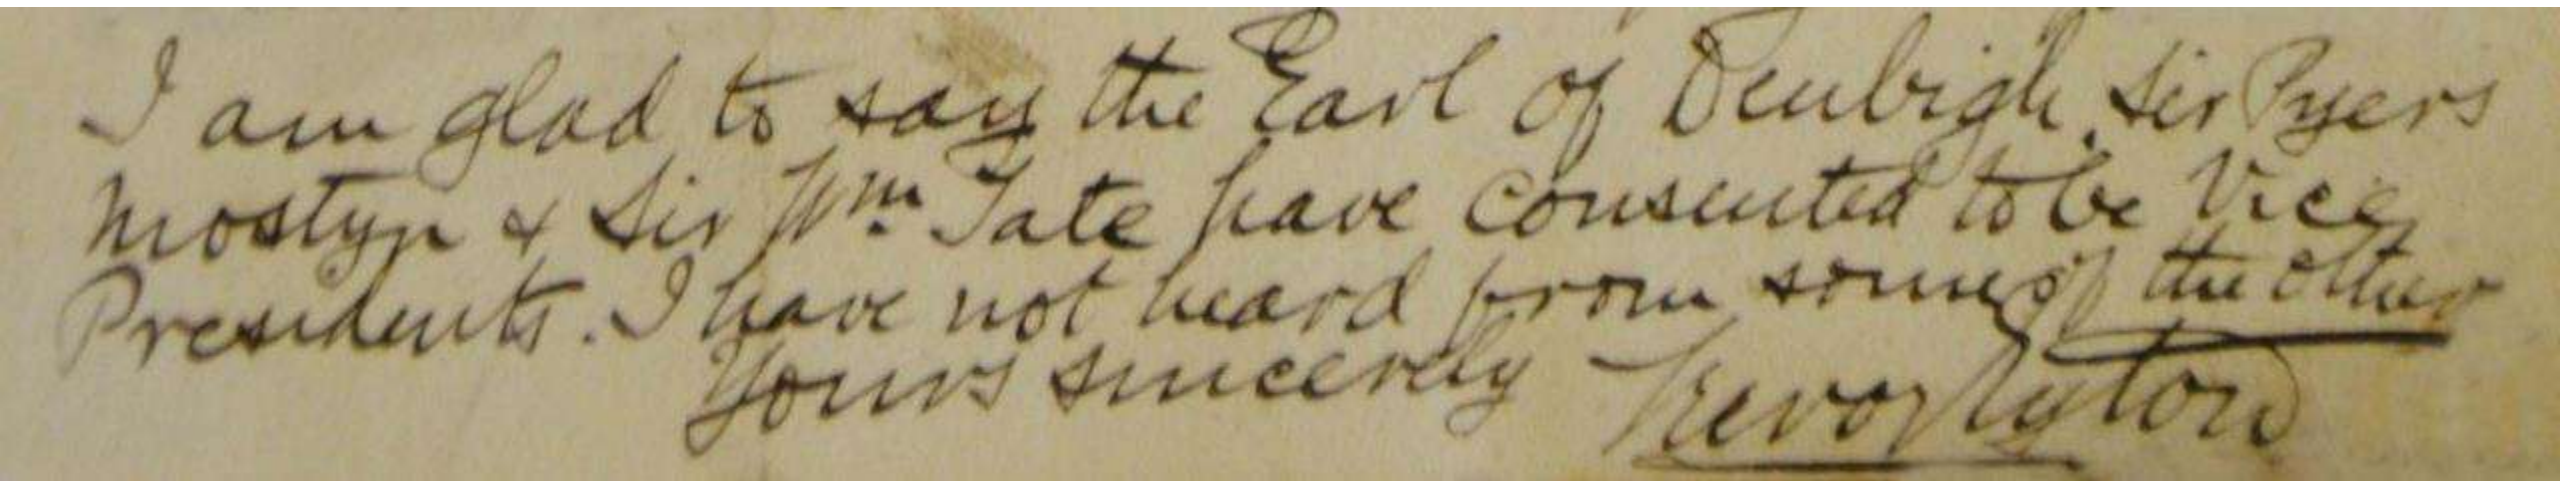 I am glad to say the Earl of Denbigh, Sir Pyers
Mostyn & Sir Wm. Tate have consented to be Vice
Presidents. I have not heard from some of the other
Yours sincerely Trevor